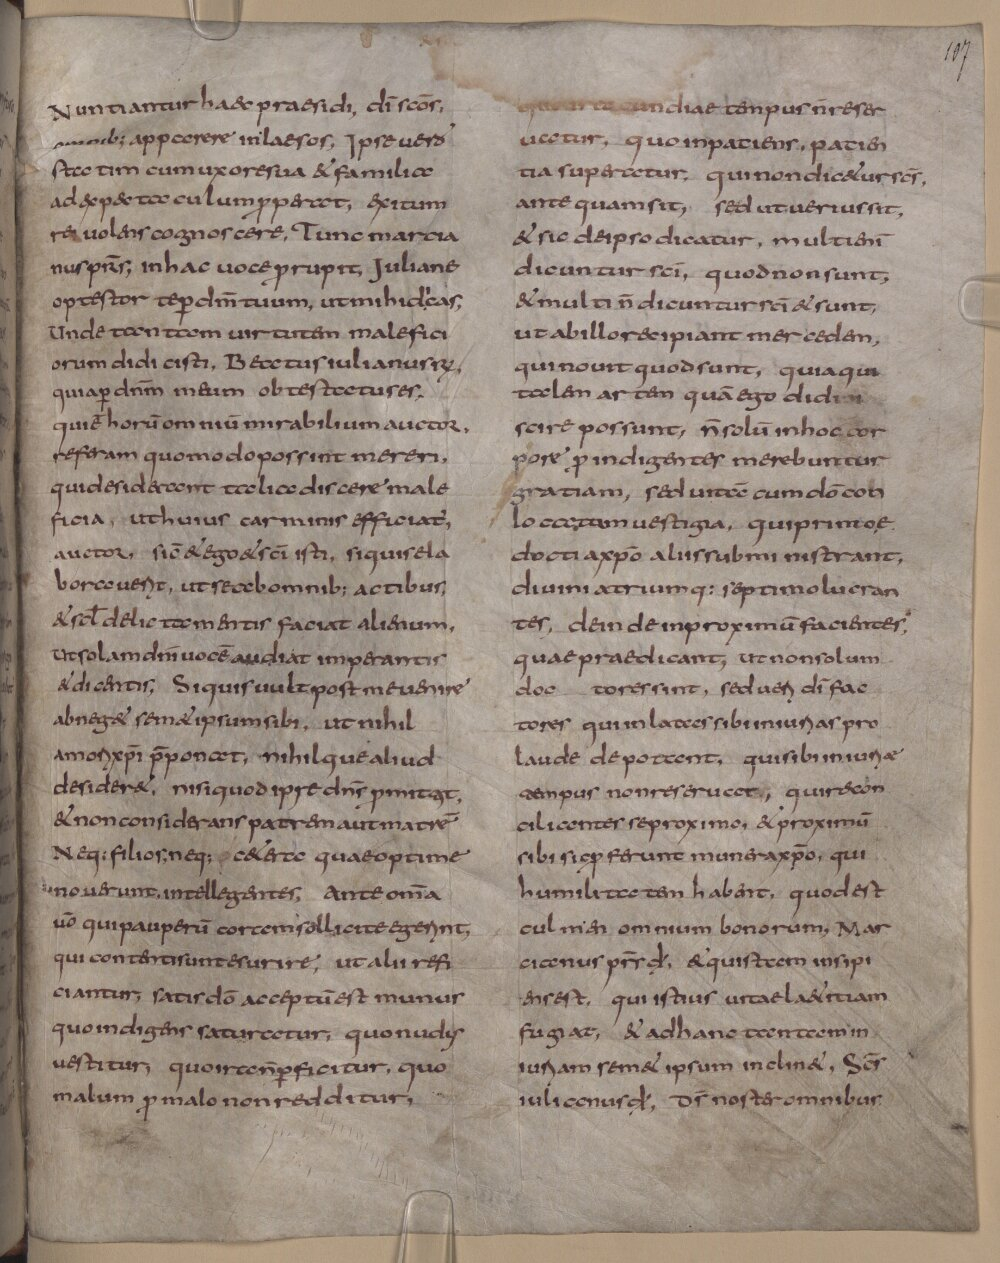 107
Nuntiantur haec praesidi, di̅ sco̅s,
omnib; apparere inlaesos, Ipse vero
statim cum uxore sua & familia
ad expectaculum ꝓperat, exitum
rei volens cognoscere, Tunc marcia
nus prs̅, in hac voce prupit, Iuliane
optestor te ꝑ dm̅ tuum, ut mihi dicas,
Unde tantam virtutem malefici
orum didicisti, Beatus iulianus r̅,
quia ꝑ dnm̅ meum obtestatus es,
qui e̅ horu̅ omniu̅ mirabilium auctor,
referam quomodo possint mereri,
qui desiderant talia discere male
ficia, ut huius carminis efficiat̅,
auctor, sic̅ & ego & sc̅i isti, si quis ela
boraverit, ut se ab omnib; actibus,
& scl̅i delictamentis faciat alienum,
ut solam dni̅ voce̅ audiat imperantis
& dicentis, Si quis vult post me venire
abneg& sem& ipsum sibi, ut nihil
amori xp̅i p̅ponat, nihilque aliud
desider&, nisi quod ipse dns̅ ꝑmittat,
& non considerans patrem aut matre̅
Neq; filios, neq; cetera quae optime
noverunt, intellegentes, Ante om̅a
v̅o qui pauperu̅ curam sollicite gerunt,
qui contenti sunt esurire, ut alii refi
ciantur, satis do̅ acceptu̅ est munus
quo indigens saturatur, quo nudus
vestitur, quo ira n̅ ꝑficitur, quo
malum ꝓ malo non redditur,
quo iracundiae tempus n̅ reser
vatur, quo inpatiens, patien
tia superatur, qui non dic&ur sc̅s,
ante quam sit, sed ut verius sit,
& sic de ipso dicatur, multi eni̅
dicuntur sc̅i, quod non sunt,
& multi n̅ dicuntur sc̅i & sunt,
ut ab illo recipiant mercedem,
qui novit quod sunt, quia qui
talem artem qua̅ ego didici
scire possunt, n̅ solu̅ in hoc cor
pore ꝓ indigentes merebuntur
gratiam, sed vita̅ cum do̅ con
locatam vestigia, qui primo
docti a xp̅o aliis subministrant,
divini atriumq; septimo lucran
tes, deinde in proximu̅ facientes,
quae praedicant, ut non solum
doctores sint, sed veri di̅ fac
tores qui inlatas sibi iniurias pro
laude deputant, qui sibi iniuriae
tempus non reservat, qui recon
ciliantes se proximo, & proximu̅
sibi sic ꝓferunt munera xp̅o, qui
humilitatem habent, quod est
culmen omnium bonorum, Mar
cianus prs̅ d̅, & quis tam insipi
ens est, qui istius vitae la&itiam
fugiat, & ad hanc tantam in
iuriam sem& ipsum inclin&, Sc̅s
iulianus d̅, Ds̅ noster omnibus